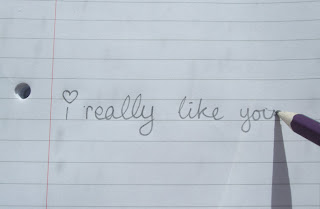 i really like you